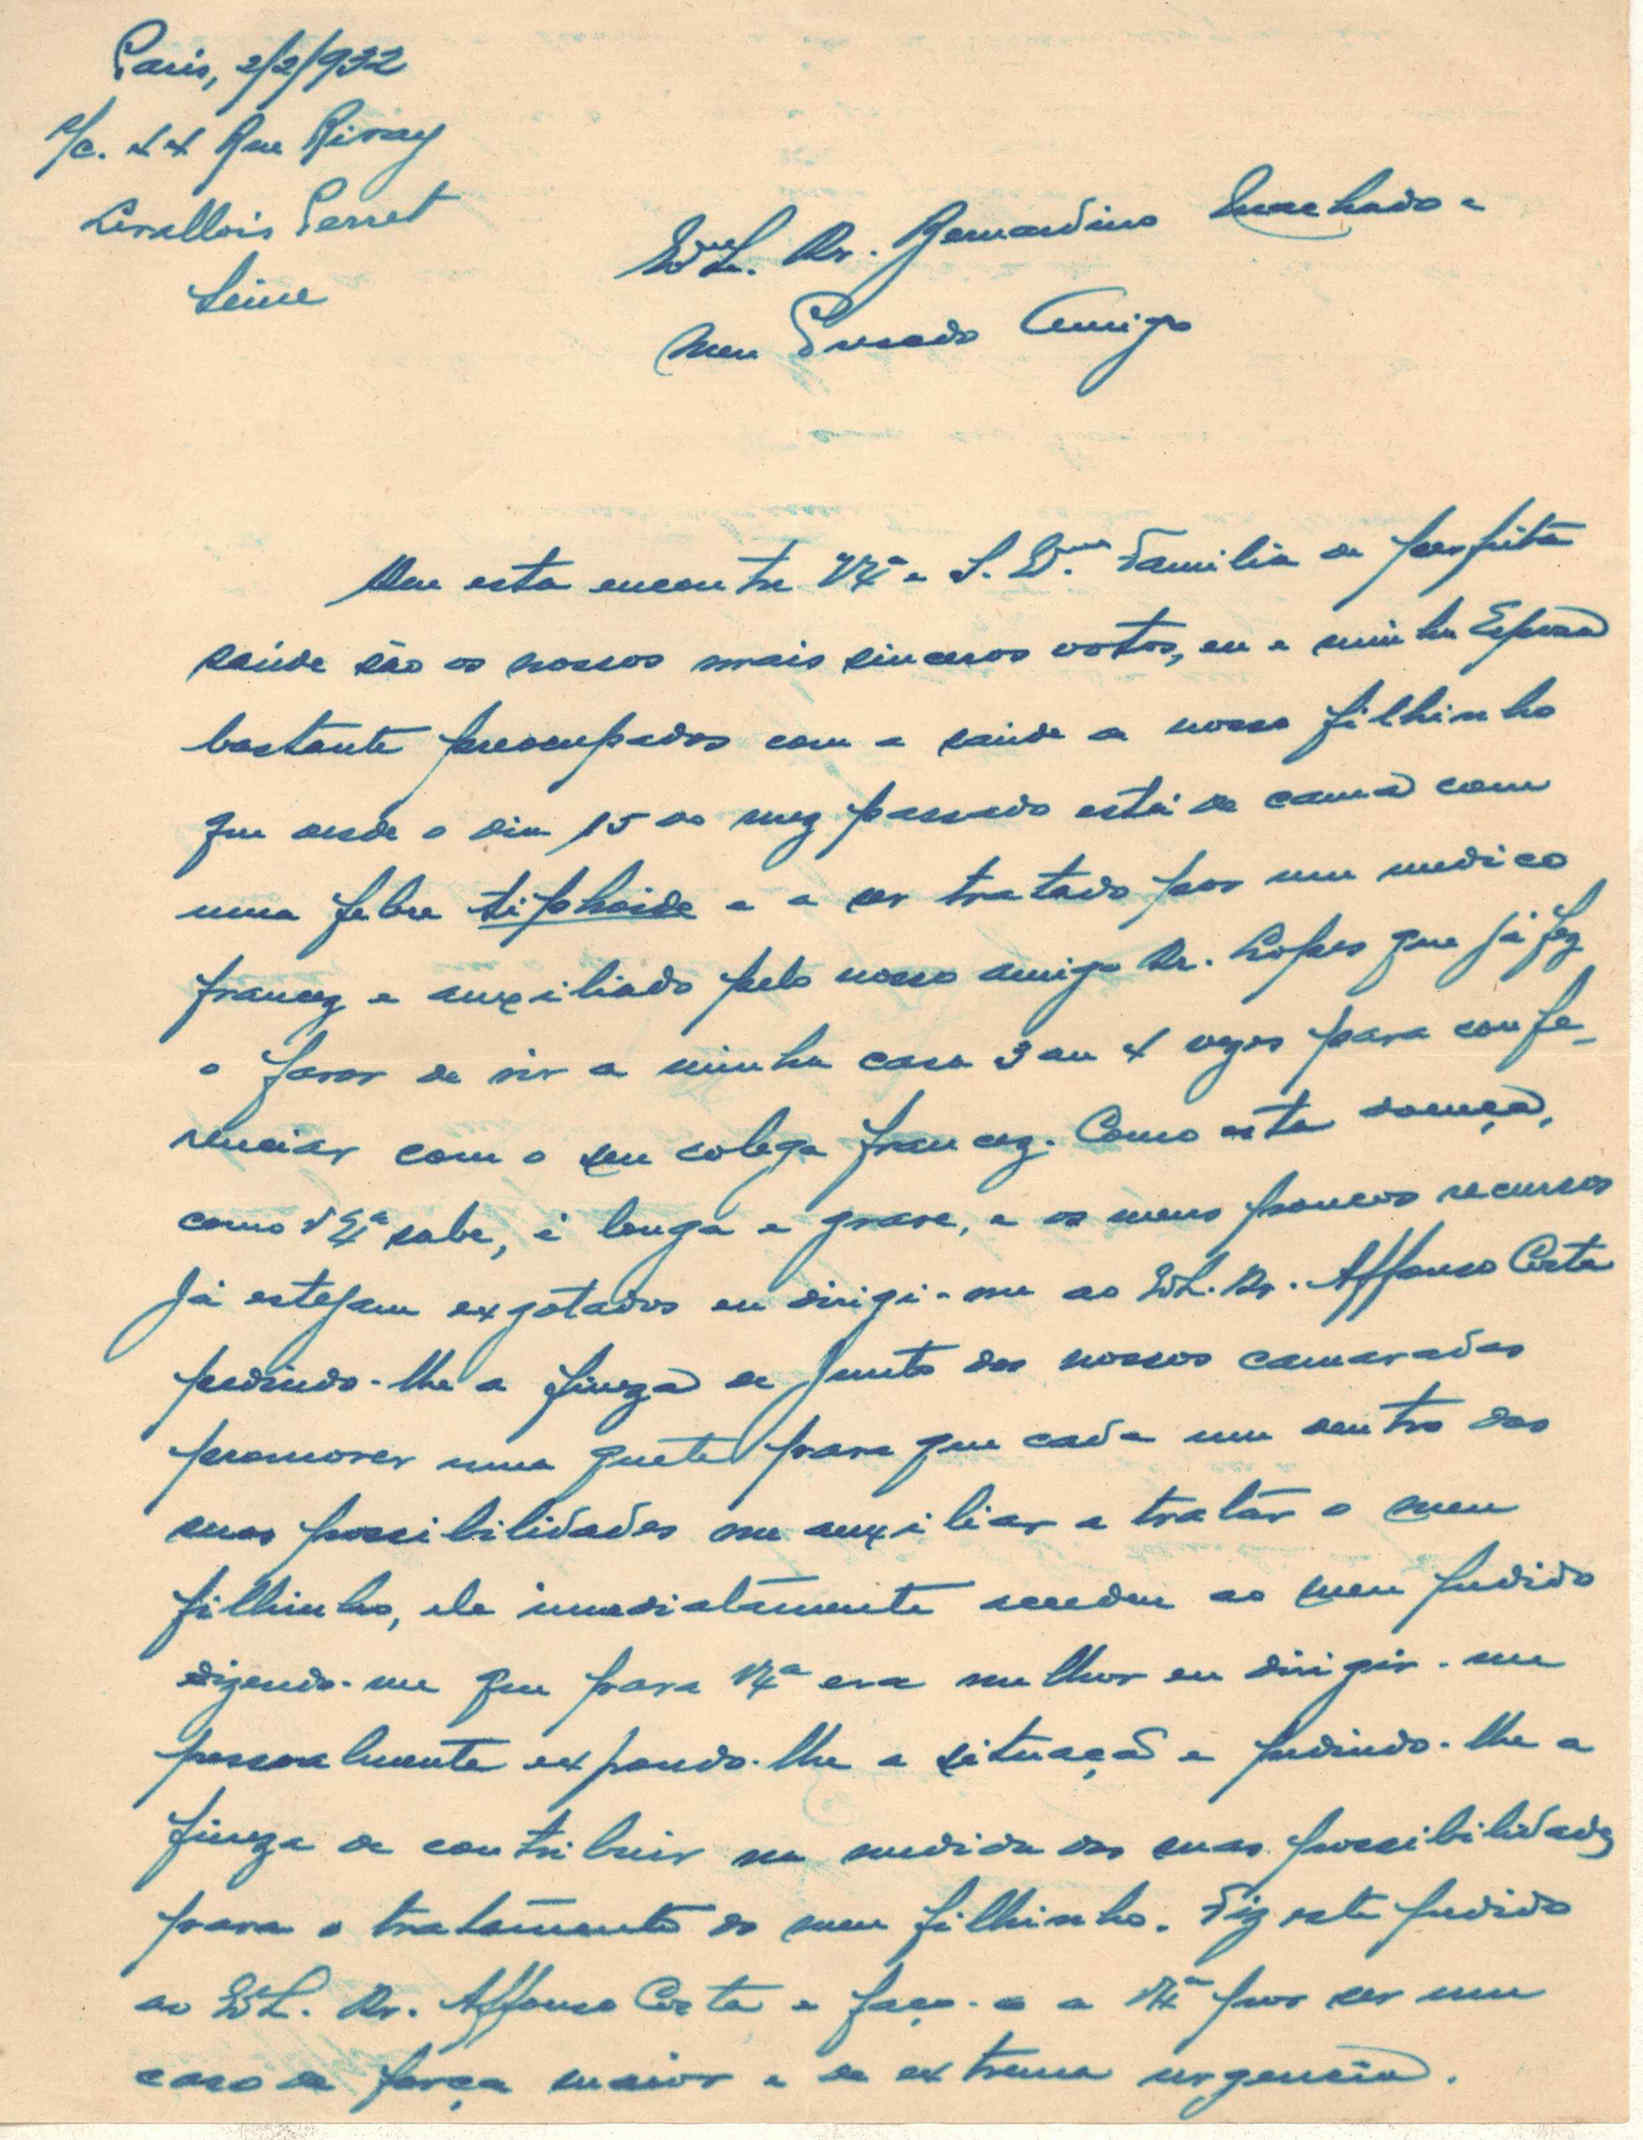 Paris, 2/2/932
s/c. 44 Rue Rivay
Levallois Perret
Seine
Dr. Bernardino Machado e
meu Presado Amigo
Que esta encontre V. Exª e S. Exma Familia de perfeita
saúde são os nossos mais sinceros votos, eu e minha Esposa
bastante preocupados com a saúde do nosso filhinho
que desde o dia 15 do mez passado está de cama com
uma febre tiphoide e a ser tratado por um medico
francez e auxiliado pelo nosso amigo Dr. Lopes que já fez
o favor de vir a minha casa 3 ou 4 vezes para confe-
renciar com o seu colega francez. Como esta doença,
como V. Exª sabe, é longa e grave, e os meus poucos recursos
já estejam exgotados eu dirigi-me ao Dr. Affonso Costa
pedindo-lhe a fineza de junto dos nossos camaradas
promover uma quete para que cada um dentro das
suas possibilidades me auxiliar a tratar o meu
filhinho, ele imediatamente acedeu ao meu pedido
dizendo-me que para V. Exª era melhor eu dirigir-me
pessoalmente expondo-lhe a situação e pedindo-lhe a
fineza de contribuir na medida das suas possibilidades
para o tratamento do meu filhinho. Fiz este pedido
ao Dr. Affonso Costa e faço-o a V. Exª por ser um
caso de força maior e de extrema urgencia.